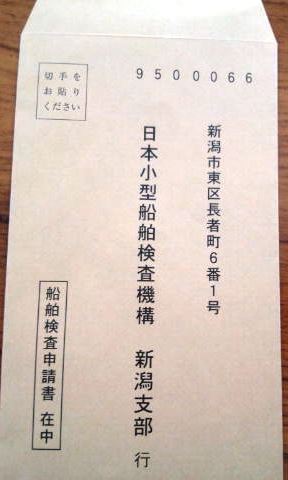 切手を
お貼り
ください
9500066
新潟市東区長者町6番1号
日本小型船舶検査機構 新潟支部 行
船舶検査申請書 在中